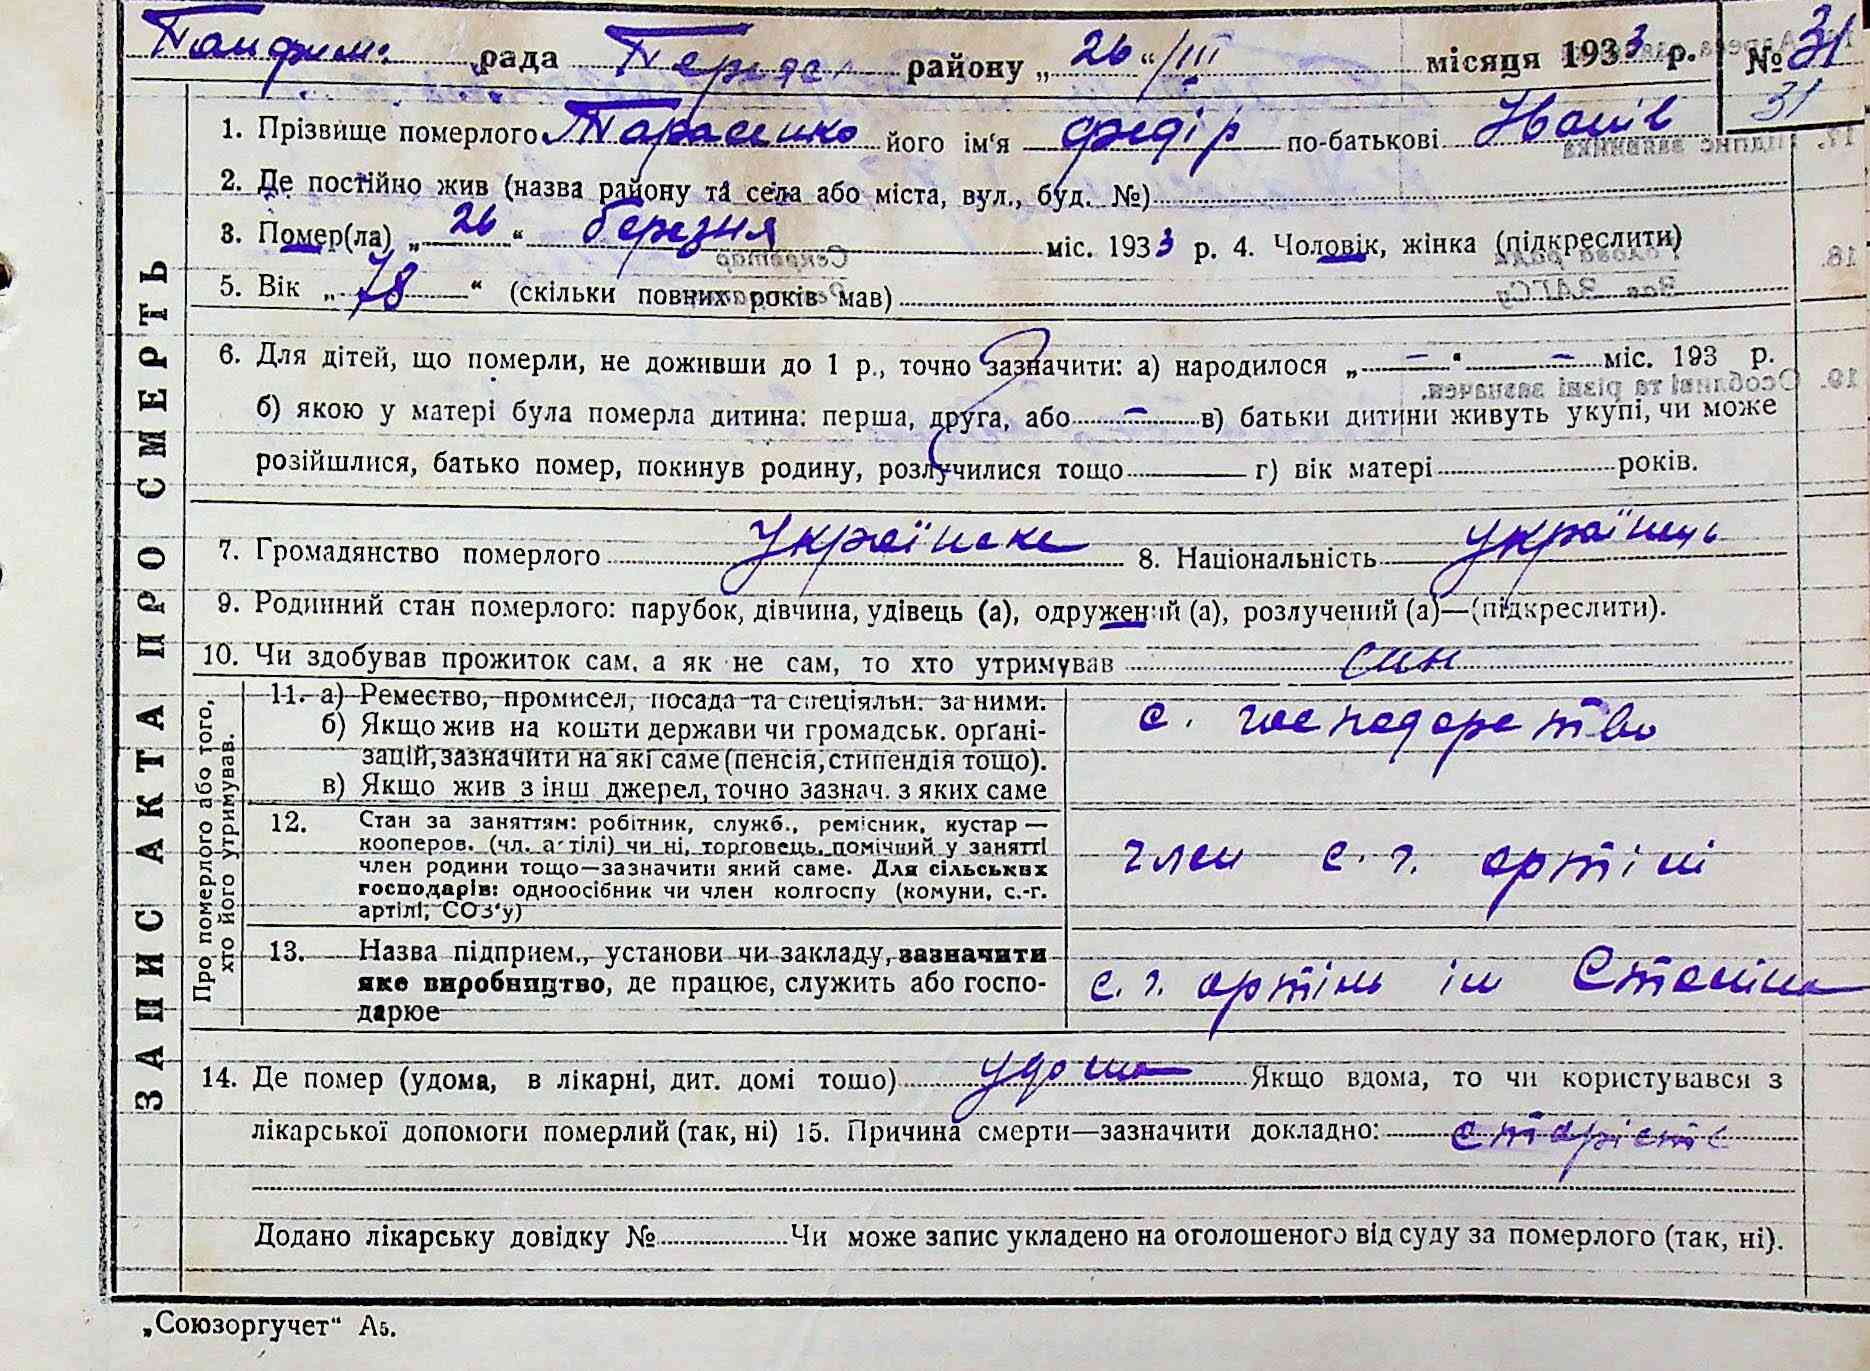 Панфил. рада Переяс. району „26“ /III місяця 1933 р. № 31
31
1. Прізвище померлого Тарасенко його ім‘я Федір по-батькові Іванів
2. Де постійно жив (назва району та села або міста, вул., буд. №)
3. Помер(ла) „26“ березня міс. 1933 р. 4. Чоловік, жінка (підкреслити)
5. Вік „78“ (скільки повних років мав)
6. Для дітей, що померли, не доживши до 1 р., точно зазначити: а) народилося „–“ – міс. 193 р.
б) якою у матері була померла дитина: перша, друга, або – в) батьки дитини живуть укупі, чи може
розійшлися, батько помер, покинув родину, розлучилися тощо г) вік матері років.
7. Громадянство померлого Українске 8. Національність українць
9. Родинний стан померлого: парубок, дівчина, удівець (а), одружений (а), розлучений (а)—(підкреслити).
10. Чи здобував прожиток сам, а як не сам, то хто утримував син
11. а) Ремество, промисел, посада та спеціяльн. за ними.
б) Якщо жив на кошти держави чи громадськ. органі-
зацій, зазначити на які саме (пенсія, стипендія тощо).
в) Якщо жив з інш джерел, точно зазнач. з яких саме
с. господарство
12. Стан за заняттям: робітник, служб., ремісник, кустар —
кооперов. (чл. артілі) чи ні, торговець, помічний у занятті
член родини тощо—зазначити який саме. Для сільських
господарів: одноосібник чи член колгоспу (комуни, с.-г.
артілі, СОЗ‘у)
член с. г. артілі
13. Назва підприєм., установи чи закладу, зазначити
яке виробництво, де працює, служить або госпо-
дарює
с. г. артіль ім Сталіна
14. Де помер (удома, в лікарні, дит. домі тошо) удома Якщо вдома, то чи користувався з
лікарської допомоги померлий (так, ні) 15. Причина смерти—зазначити докладно: старість
Додано лікарську довідку № Чи може запис укладено на оголошеного від суду за померлого (так, ні).
ЗАПИС АКТА ПРО СМЕРТЬ
Про померлого або того,
хто його утримував.
„Союзоргучет“ А5.